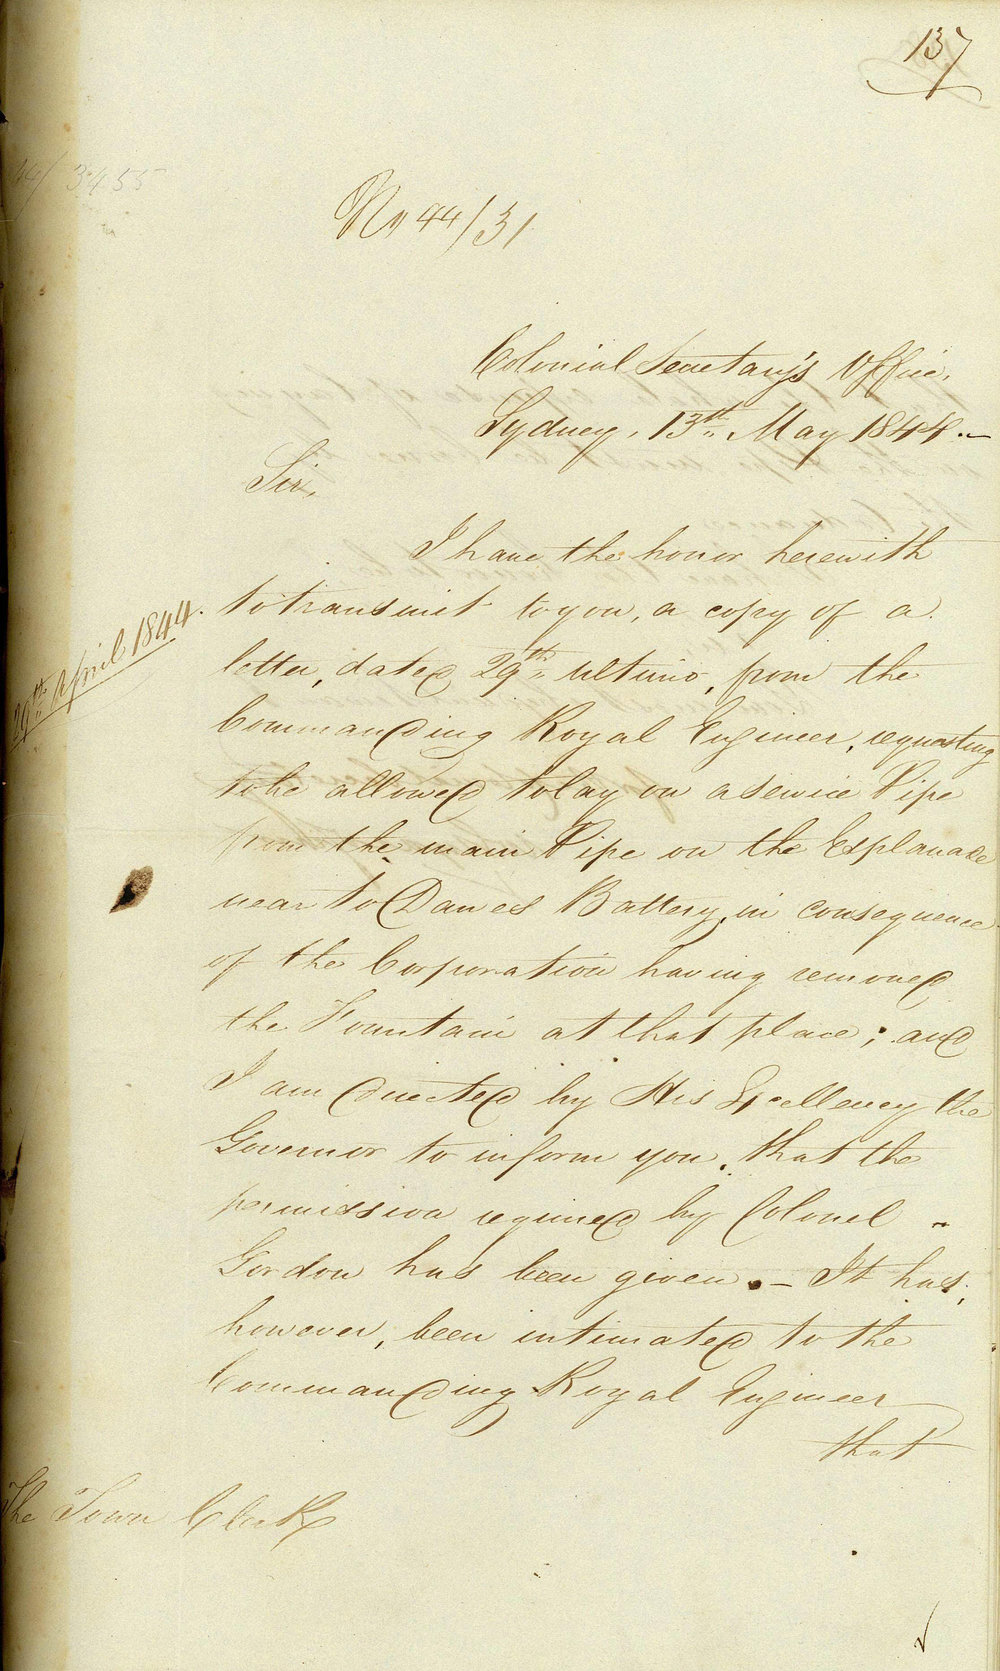 137
44/3455
No 44/31
Colonial Secretary's Office,
Sydney, 13th May 1844.-
Sir,
I have the honor herewith
29th April 1844.
to transmit to you, a copy of a
letter, dated 29th ultimo, from the
Commanding Royal Engineer, requesting
to be allowed to lay on a service Pipe
from the main Pipe on the Esplanade
near to Dawes Battery, in consequence
of the Corporation having removed
the Fountain at that place; and
I am directed by His Excellency the
Governor to inform you, that the
permission required by Colonel -
Gordon has been given. - It has,
however, been intimated to the
Commanding Royal Engineer
that
The Town Clerk